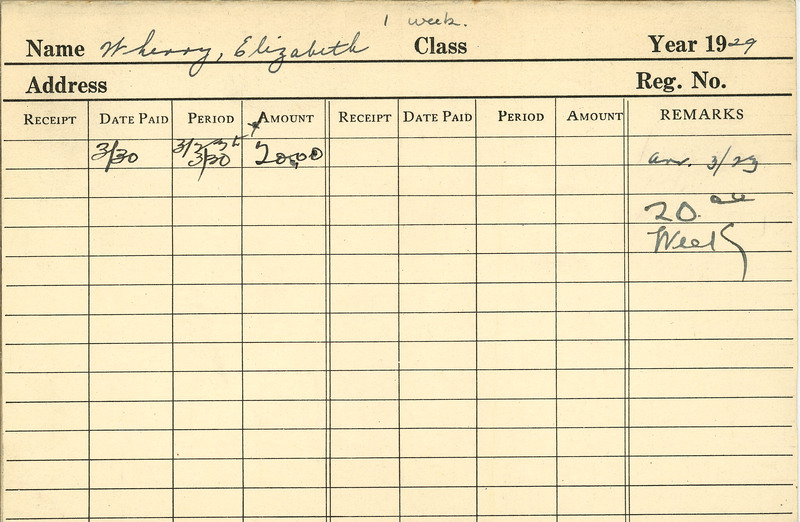 1 week.
Name Wherry, Elizabeth Class Year 1929
Address Reg. No.
RECEIPT DATE PAID PERIOD AMOUNT RECEIPT DATE PAID PERIOD AMOUNT REMARKS
3/23 to
3/30 3/30 20.00 arr. 3/23
20.00
Weekly